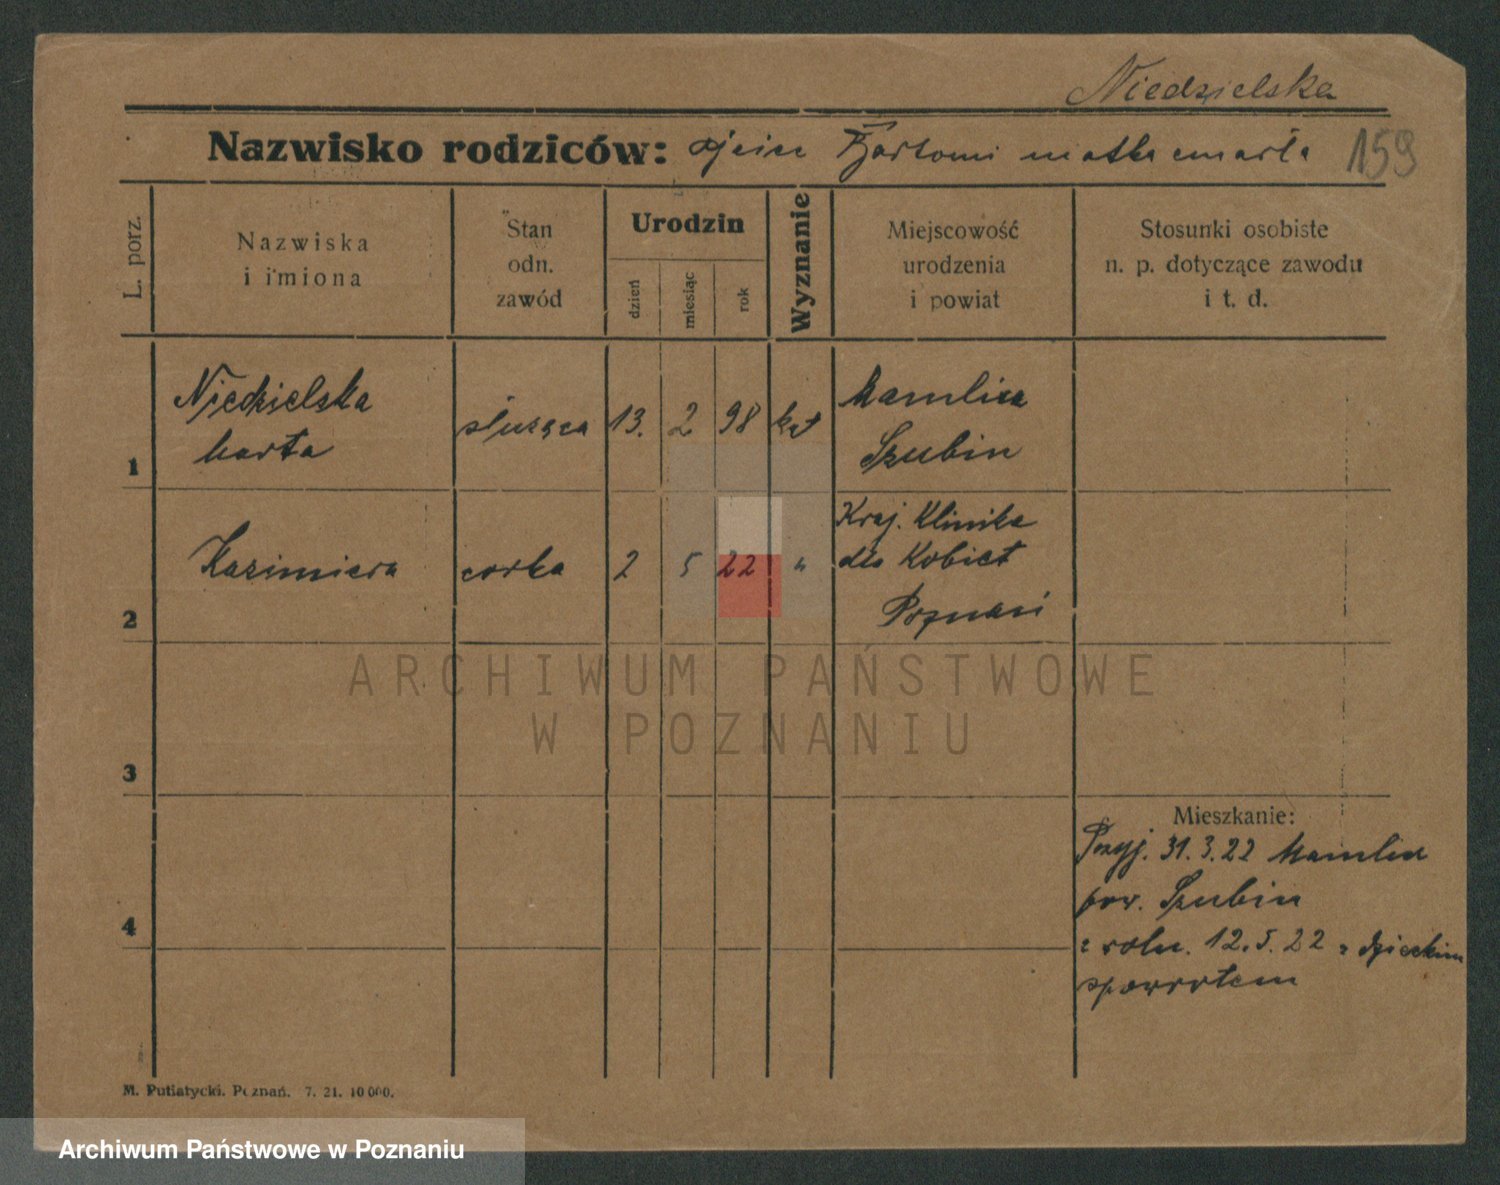 Niedzielska
Nazwisko rodziców: ojciec Bartłomi matka zmarła 159
L. porz.
Nazwiska
i imiona
Stan
odn.
zawód
Urodzin
dzień
miesiąc
rok
Wyznanie
Miejscowość
urodzenia
i powiat
Stosunki osobiste
n. p. dotyczące zawodu
i t. d.
1
Niedzielska
Marta
służąca
13. 2 98
kat
Mamlicz
Szubin
2
Kazimiera
córka
2 5 22
"
Kraj. Klinika
dla Kobiet
Poznań
3
4
Mieszkanie:
Przyj. 31.3.22 Mamlicz
pow. Szubin
12.5.22 z dzieckiem
spowrotem
M. Putiatycki. Poznań. 7. 21. 10 000.
ARCHIWUM PAŃSTWOWE
W POZNANIU
Archiwum Państwowe w Poznaniu